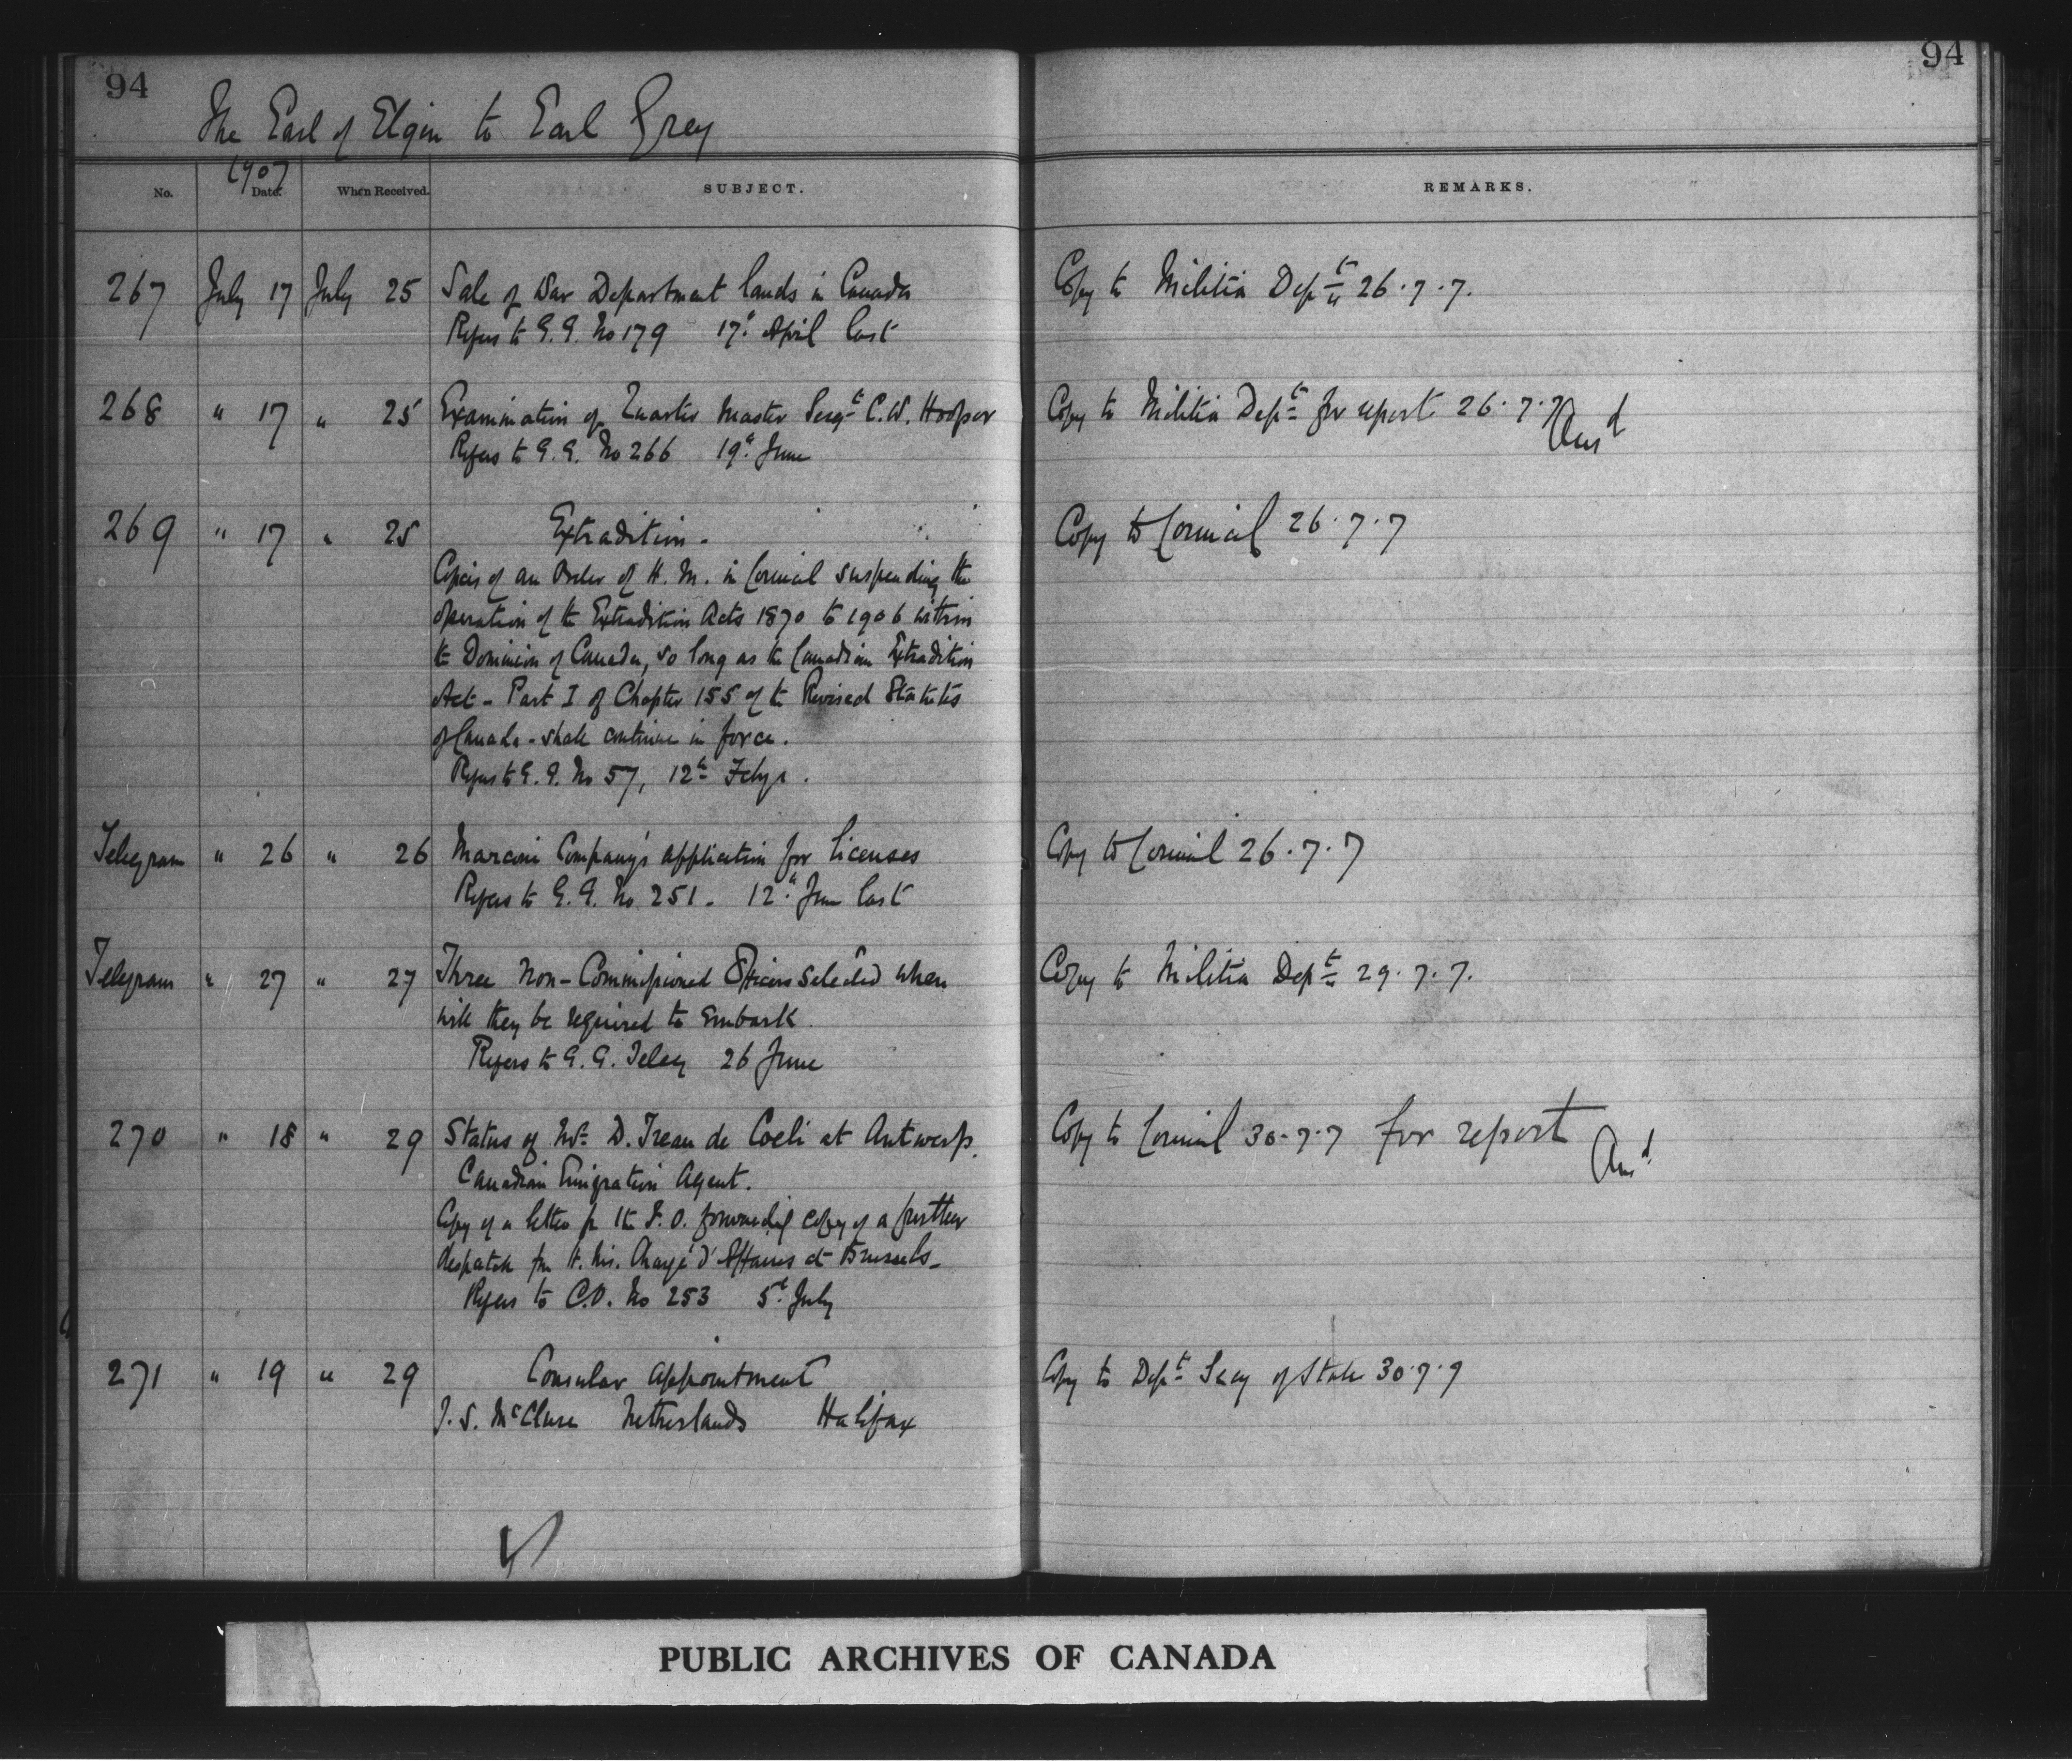 94
94
The Earl of Elgin to Earl Grey
1907
No. Date. When Received. SUBJECT. REMARKS.
267 July 17 July 25 Sale of War Department lands in Canada Copy to Militia Dept 26.7.7.
Refers to G.G. No 179 17th April last
268 " 17 " 25 Examination of Quarter Master Sergt C.W. Hooper Copy to Militia Dept for report 26.7.7 Ansd
Refers to G.G. No 266 19th June
269 " 17 " 25 Extradition - Copy to Council 26.7.7
Copies of an Order of H.M. in Council suspending the
operation of the Extradition Acts 1870 to 1906 within
the Dominion of Canada, so long as the Canadian Extradition
Act - Part I of Chapter 155 of the Revised Statutes
of Canada - shall continue in force.
Refers to G.G. No 57, 12th Feby.
Telegram " 26 " 26 Marconi Company's application for licenses Copy to Council 26.7.7
Refers to G.G. No 251 - 12th June last
Telegram " 27 " 27 Three Non-Commissioned Officers selected when Copy to Militia Dept 29.7.7.
will they be required to embark.
Refers to G.G. Teleg 26 June
270 " 18 " 29 Status of Mr D. Treau de Coeli at Antwerp. Copy to Council 30.7.7 for report Ansd
Canadian Emigration Agent.
Copy of a letter fr the F.O. forwarding copy of a further
despatch fm H.M. Chargé d'Affaires at Brussels -
Refers to C.O. No 253 5th July
271 " 19 " 29 Consular appointment Copy to Dept Secy of State 30.7.7
J.S. McClure Netherlands Halifax
PUBLIC ARCHIVES OF CANADA